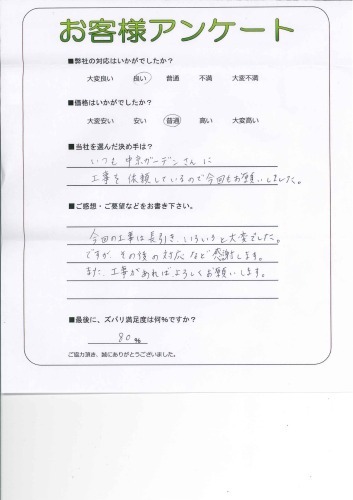 お客様アンケート
■弊社の対応はいかがでしたか?
大変良い 良い 普通 不満 大変不満
■価格はいかがでしたか?
大変安い 安い 普通 高い 大変高い
■当社を選んだ決め手は?
いつも中京ガーデンさんに
工事を依頼しているので今回もお願いしました。
■ご感想・ご要望などをお書き下さい。
今回の工事は長引き、いろいろと大変でした。
ですが、その後の対応など感謝します。
また、工事があればよろしくお願いします。
■最後に、ズバリ満足度は何%ですか?
80%
ご協力頂き、誠にありがとうございました。